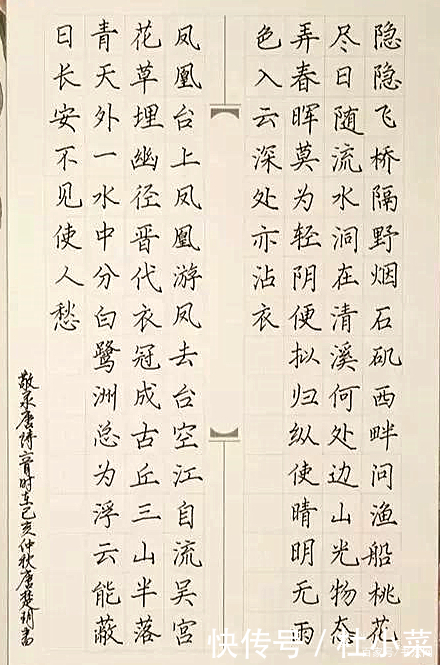 隐隐飞桥隔野烟石矶西畔问渔船桃花
尽日随流水洞在清溪何处边山光物态
弄春晖莫为轻阴便拟归纵使晴明无雨
色入云深处亦沾衣
凤凰台上凤凰游凤去台空江自流吴宫
花草埋幽径晋代衣冠成古丘三山半落
青天外一水中分白鹭洲总为浮云能蔽
日长安不见使人愁
敬录唐诗二首时在己亥仲秋唐楚玥书
快传号/杜小菜